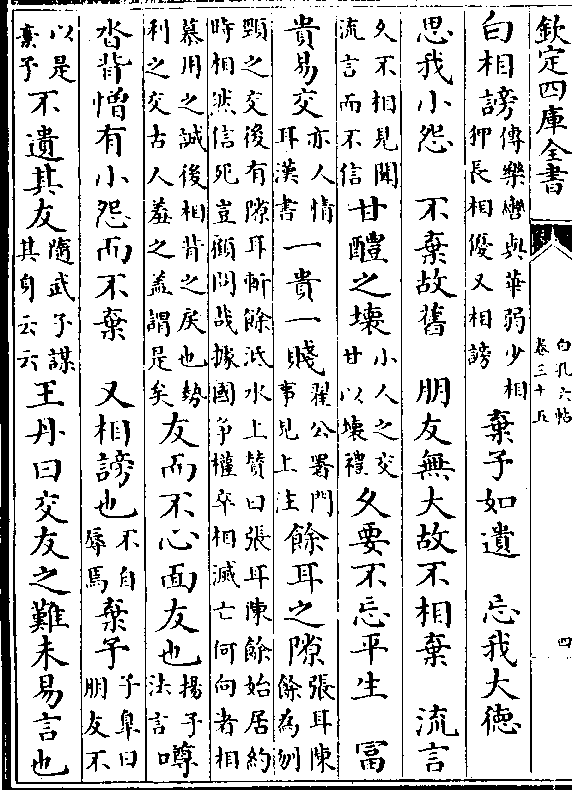 欽定四庫全書
白孔六帖
卷三十五
四
白相謗傳樂轡與華弱少相狎長相優又相謗棄予如遺 忘我大德
思我小怨 不棄故舊 朋友無大故不相棄 流言
久不相見聞流言而不信甘醴之壞小人之交甘以壞禮久要不忘平生 冨
貴易交亦人情耳漢書一貴一賤翟公署門事見上注餘耳之隙張耳陳餘為刎
頸之交後有隙耳斬餘泜水上贊曰張耳陳餘始居約時相然信死豈顧問哉據國爭權卒相滅亡何向者相
慕用之誠後相背之戾也勢利之交古人羞之蓋謂是矣友而不心面友也揚子法言噂
沓背憎有小怨而不棄 又相謗也不自辱焉棄予子臯曰朋友不
以是棄予不遺其友隨武子謀其身云云王丹曰交友之難未易言也